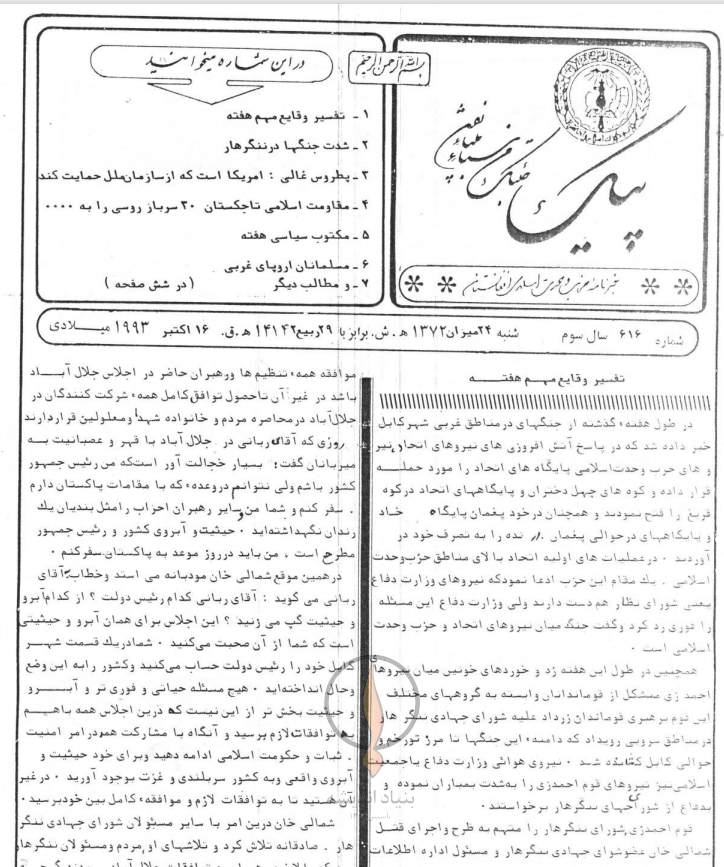 پیک
خبرنامه حزب وحدت اسلامی افغانستان
بسم الله الرحمن الرحیم
در این شماره میخوانید
۱ ـ تفسیر وقایع مهم هفته
۲ ـ شدت جنگها درننگرهار
۳ ـ پطروس غالی : امریکا است که ازسازمان‌ملل حمایت کند
۴ ـ مقاومت اسلامی تاجکستان ۲۰ سرباز روسی را به ۰۰۰۰
۵ ـ مکتوب سیاسی هفته
۶ ـ مسلمانان اروپای غربی
۷ ـ و مطالب دیگر ( در شش صفحه )
شماره ۶۱۶ سال سوم شنبه ۲۴میزان ۱۳۷۲ ه‍ . ش. برابر با ۲۹ربیع ۱۴۱۴۲ ه‍ .ق. ۱۶ اکتبر ۱۹۹۳ میلادی
تفسیر وقایع مهم هفته
در طول هفتهء گذشته از جنگهای درمناطق غربی شهرکابل
خبر داده شد که در پاسخ آتش افروزی های نیروهای اتحاد نیر
و های حزب وحدت‌اسلامی پایگاه های اتحاد را مورد حمله
قرار داده و کوه های چهل دختران و پایگاههای اتحاد درکوه
قریغ را فتح نمودند و همچنان درخود پغمان پایگاه خاد
و پایگاههای درحوالی پغمان نده را به تصرف خود در
آوردند ۰ درعملیات های اولیه اتحاد بالای مناطق حزب‌وحدت
اسلامی . یک مقام این حزب ادعا نمودکه نیروهای وزارت دفاع
یعنی شورای نظار هم دست دارند ولی وزارت دفاع این مسئله
را فوری رد کرد وگفت جنگ میان نیروهای اتحاد و حزب وحدت
اسلامی است ۰
همچنین در طول این هفته زد و خوردهای خونین میان نیروها
احمد زی متشکل از قوماندانان وابسته به گروههای مختلف
این قوم برهبری قوماندان زرداد علیه شورای جهادی ننگر هار
درمناطق سروبی رویداد که دامنهء این جنگها تا مرز تورخم و
حوالی کابل کشانده شد ۰ نیروی هوائی وزارت دفاع یاجمعیت
اسلامی‌نیز نیروهای قوم احمدزی را به‌شدت بمباران نموده و
بدفاع از شورای جهادی ننگرهار برخواستند ۰
قوم احمدزی,شورای ننگرهار را متهم به طرح واجرای قتل
شمالی خان عضوشورای جهادی ننگرهار و مسئول اداره اطلاعات
موافقه همهء تنظیم ها ورهبران حاضر در اجلاس جلال آباد
باشد در غیر آن تاحصول توافق‌کامل همهء شرکت کنندگان در
جلال‌آباد درمحاصره مردم و خانواده شهدا ومعلولین قراردارند
روزی که آقای ربانی در جلال آباد با قهر و عصبانیت به
میزبانان گفت: بسیار خجالت آور است‌که من رئیس جمهور
کشور باشم ولی نتوانم دروعدهء که با مقامات پاکستان دارم
. سفر کنم و شما من وسایر رهبران احزاب رامثل بندیان یک
زندان نگهداشته‌اید ۰ حیثیت و آبروی کشور و رئیس جمهور
مطرح است ، من باید درروز موعد به پاکستان.سفرکنم ۰
درهمین موقع شمالی خان مودبانه می استد وخطاب به آقای
ربانی می گوید : آقای ربانی کدام رئیس دولت ؟ از کدام‌آبرو
و حیثیت گپ می زنید ؟ این اجلاس برای همان آبرو و حیثیتی
است که شما از آن صحبت می‌کنید ۰ شمادریک قسمت شهر
کابل خود را رئیس دولت حساب می‌کنید وکشور رابه این وضع
وحال انداخته‌اید ۰ هیچ مسئله حیاتی و فوری تر و آبرو
و حیثیت بخش تر از این نیست که درین اجلاس همه باهم
به توافقات‌لازم برسید و آنگاه با مشارکت همه‌در امر امنیت
. ثبات و حکومت اسلامی ادامه دهید وبرای خود حیثیت و
آبروی واقعی وبه کشور سربلندی و عزت بوجود آورید ۰ درغیر
آن هستید تا به توافقات لازم و موافقهء کامل بین خودبرسید۰
شمالی خان درین امر با سایر مسئولان شورای جهادی ننگر
هار . صادقانه تلاش کرد و تلاشهای او,مردم ومسئولان ننگرهار